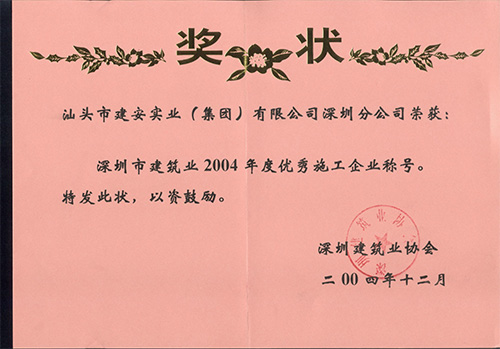 奖状
汕头市建安实业（集团）有限公司深圳分公司荣获：
深圳市建筑业2004年度优秀施工企业称号。
特发此状，以资鼓励。
深圳建筑业协会
二00四年十二月